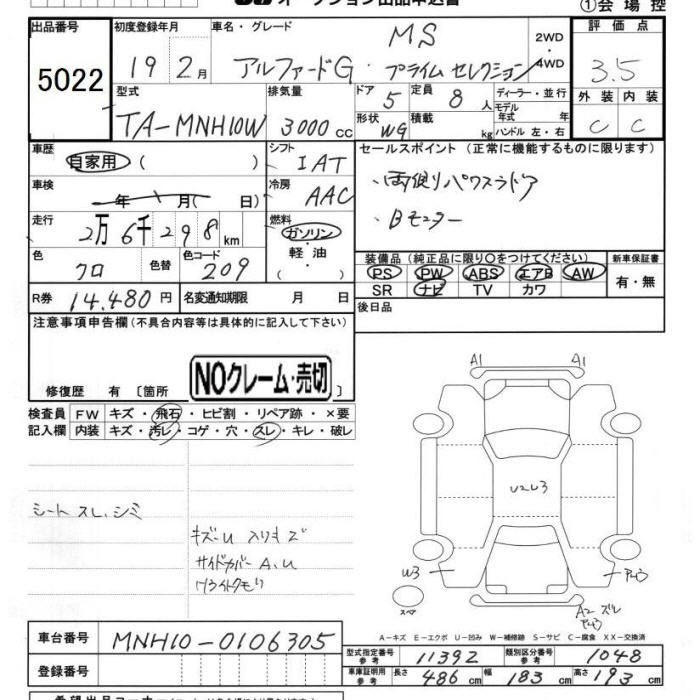 オークション出品申込書
①会場控
出品番号
5022
初度登録年月
19 2月
車名・グレード
MS
アルファードG・プライムセレクション
2WD・4WD
評価点
3.5
外装 内装
C C
型式
TA-MNH10W
排気量
3000cc
ドア
5
定員
8人
形状
WG
積載
kg
ディーラー・並行
モデル年式 年
ハンドル 左・右
車歴
自家用 ( )
シフト
IAT
車検
年 月( 日)
冷房
AAC
走行
2万6千298km
燃料
ガソリン・軽油
( )
色
クロ
色替
色コード
209
R券 14,480円
名変通知期限 月 日
セールスポイント (正常に機能するものに限ります)
・両側パワスラドア
・Bモニター
装備品(純正品に限り○をつけてください)
PS PW ABS エアB AW
SR ナビ TV カワ
新車保証書
有・無
後日品
注意事項申告欄(不具合内容等は具体的に記入して下さい)
NOクレーム・売切
修復歴 有 〔箇所 〕
検査員記入欄
FW キズ・飛石・ヒビ割・リペア跡・×要
内装 キズ・汚レ・コゲ・穴・スレ・キレ・破レ
シートスレ、シミ
キズーU 入リキズ
サイドカバーA、U
A1 A1
U2U3
U3
スペア
A2
A-キズ E-エクボ U-凹み W-補修跡 S-サビ C-腐食 XX-交換済
車台番号 MNH10-0106305
登録番号
型式指定番号 参考 11392
類別区分番号 参考 1048
車庫証明用 参考 長さ 486cm 幅 183cm 高さ 193cm